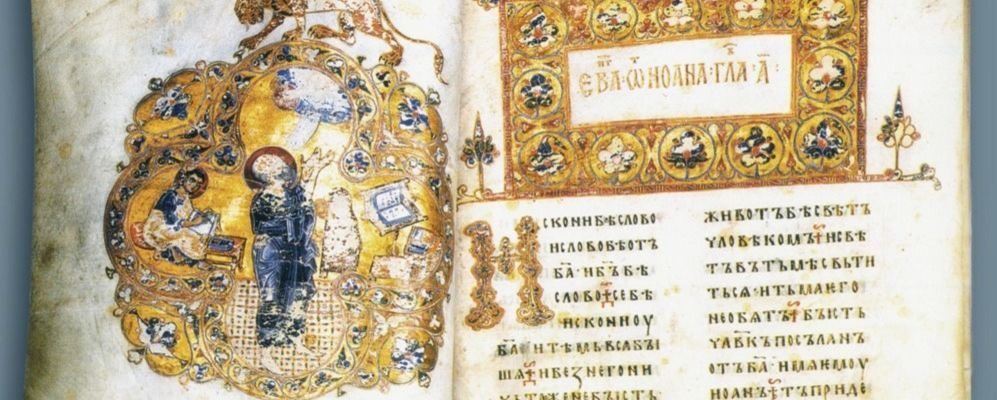 ЄВА҃·Ѿ ИОАНА·ГЛА·А҃·
ИСКОНИБѢСЛОВО
ИСЛОВОБѢОТЪ
Б҃А·ИБ҃ЪБѢ
СЛОВО СЕБѢ
ИСКОНИОУ
Б҃А ИТѢМЬВСАБЫ
ШѦ ИБЕЗНЕГОНИ
ЧЬТОЖЕНЕБЫСТЬ
ЖИВОТЪБѢСВѢТЪ
ЧЛОВѢКОМЪ ИСВѢ
ТЪВЪТЬМѢСВЬТИ
ТЬСѦ·ИТЬМАѤГО
НЕОБѦТЪ БЫСТЬ
ЧЛ҃ВКЪПОСЪЛАНЪ
ОТЪБ҃А·ИМѦѤМОУ
ИОАНЪ ТЪПРИДЕ